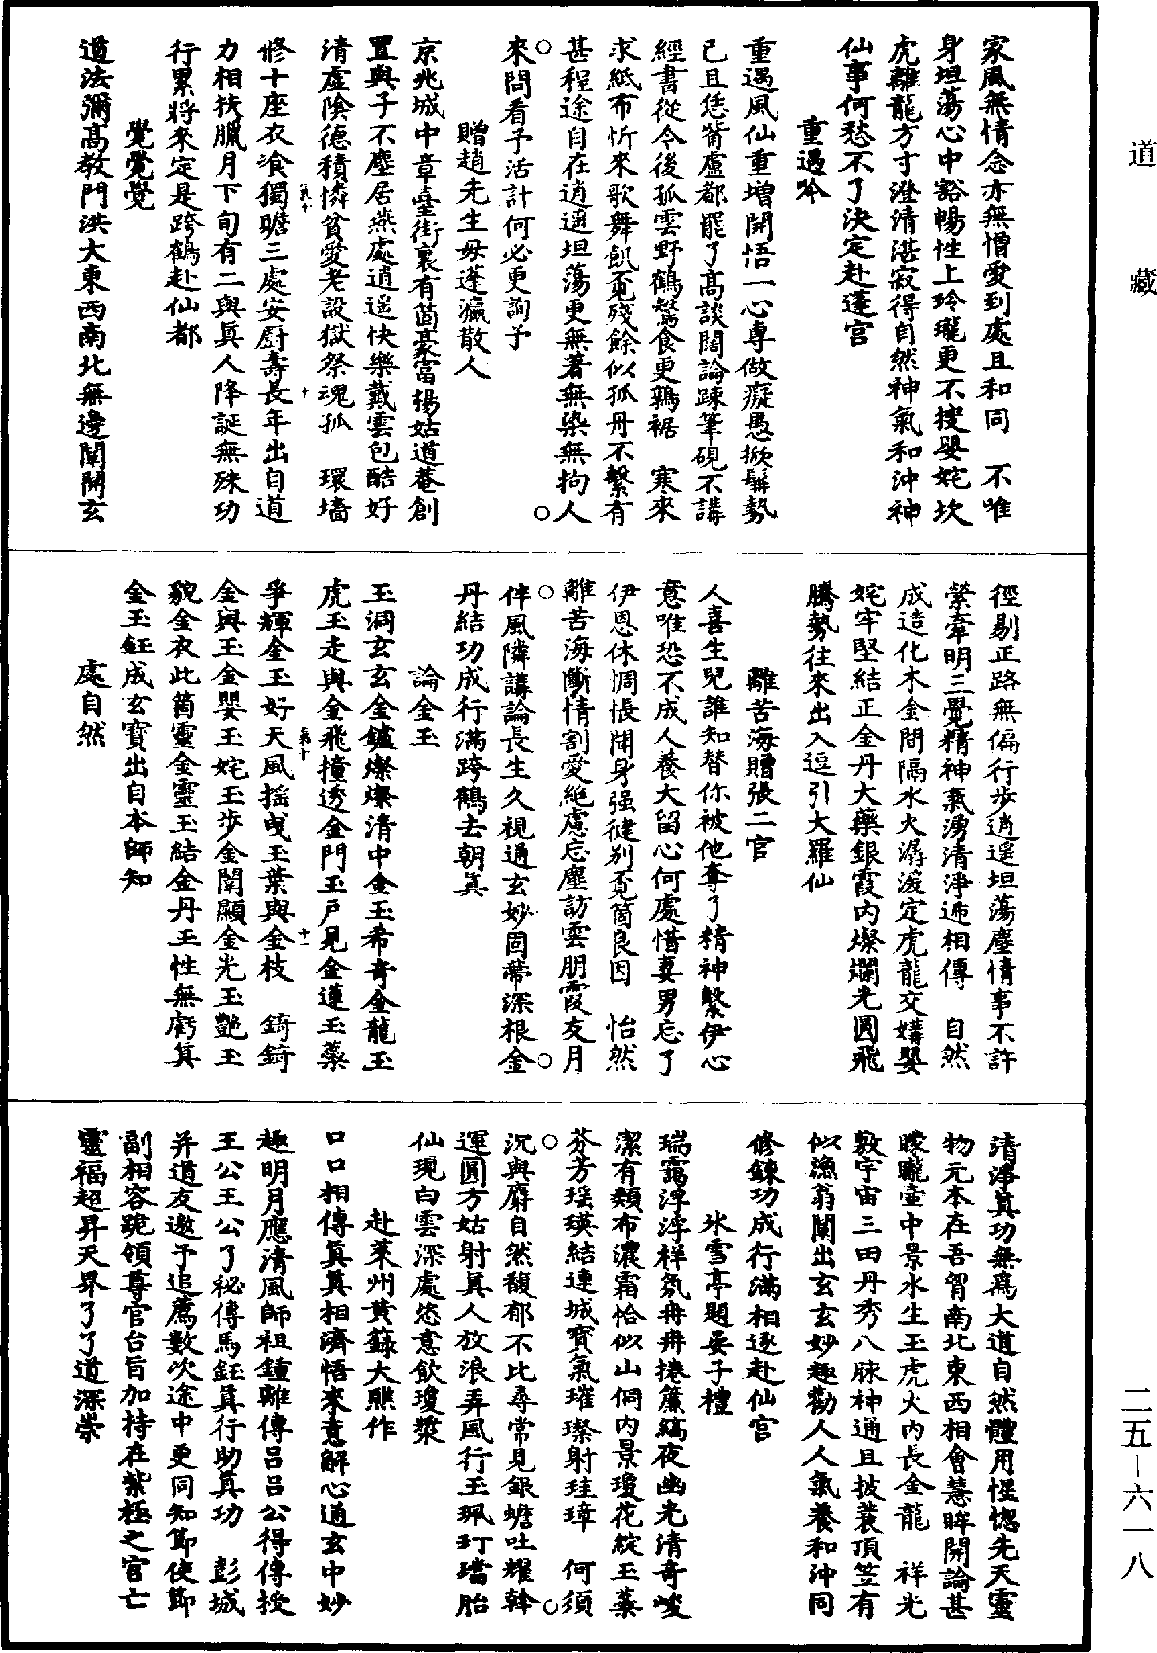 道藏
家風無情念亦無憎愛到處且和同　不唯
身坦蕩心中豁暢性上玲瓏更不搜嬰姹坎
虎離龍方寸澄清湛寂得自然神氣和沖神
仙事何愁不了決定赴蓬宮
重遇吟
重遇風仙重增開悟一心專做癡愚掀髯勢
已且恁觜盧都罷了高談闊論踈筆硯不講
經書從今後孤雲野鶴鶉食更鶉裾　寒來
求紙布忻來歌舞飢覓殘餘似孤舟不繫有
甚程途自在逍遙坦蕩更無著無染無拘人
來問看予活計何必更詢予
贈趙先生毋蓬瀛散人
京兆城中章臺街裏有箇豪富揚姑道菴創
置與子不塵居燕處逍遥快樂戴雲包酷好
清虛陰德積憐貧愛老設獄祭魂孤　環墻
修十座衣飡獨贍三處安厨壽長年出自道
力相扶臘月下旬有二與真人降誕無殊功
行累將來定是跨鶴赴仙都
覺覺覺
道法彌高教門洪大東西南北無邊闡開玄
徑剔正路無偏行步逍遥坦蕩塵情事不許
縈牽明三覺精神氣湧清淨逓相傳　自然
成造化木金間隔水火潺湲定虎龍交媾嬰
姹牢堅結正金丹大藥銀霞內燦爛光圓飛
騰勢往來出入逗引大羅仙
離苦海贈張二官
人喜生兒誰知替你被他奪了精神繫伊心
意唯恐不成人養大留心何處惜妻男忘了
伊恩休惆悵閑身强健別覓箇良因　怡然
離苦海斷情割愛絕慮忘塵訪雲朋霞友月
伴風隣講論長生久視通玄妙固蒂深根金
丹結功成行滿跨鶴去朝真
論金玉
玉洞玄玄金鑪燦燦清中金玉希奇金龍玉
虎玉走與金飛撞透金門玉戶見金蓮玉蘂
爭輝金玉好天風搖曳玉葉與金枝　錡錡
金與玉金嬰玉姹玉步金闌顯金光玉艷玉
貌金衣此箇靈金靈玉結金丹玉性無虧真
金玉鈺成玄寶出自本師知
處自然
清淨真功無爲大道自然體用惺惚先天靈
物元本在吾胷南北東西相會慧眸開論甚
矇矓壷中景水生玉虎火內長金龍　祥光
敷宇宙三田丹秀八脉神通且披蓑頂笠有
似漁翁闡出玄玄妙趣勸人人氣養和沖同
修鍊功成行滿相逐赴仙宮
氷雪亭題晏子禮
瑞靄浮浮祥氛冉冉捲簾縞夜幽光清奇峻
潔有類布濃霜恰似山侗內景瓊花綻玉蘂
芬芳瑶瑛結連城寶氣璀璨射珪璋　何須
沉與麝自然馥郁不比尋常見銀蟾吐耀斡
運圓方姑射真人放浪弄風行玉珮玎璫胎
仙現白雲深處恣意飲瓊漿
赴萊州黃籙大醮作
口口相傳真真相濟悟來意解心通玄中妙
趣明月應清風師祖鍾離傳呂呂公得傳授
王公王公了祕傳馬鈺真行助真功　彭城
并道友邀予追薦數次途中更同知節使節
副相容跪領尊官台旨加持在紫極之宮亡
靈福超昇天界了了道深崇
二五—六一八